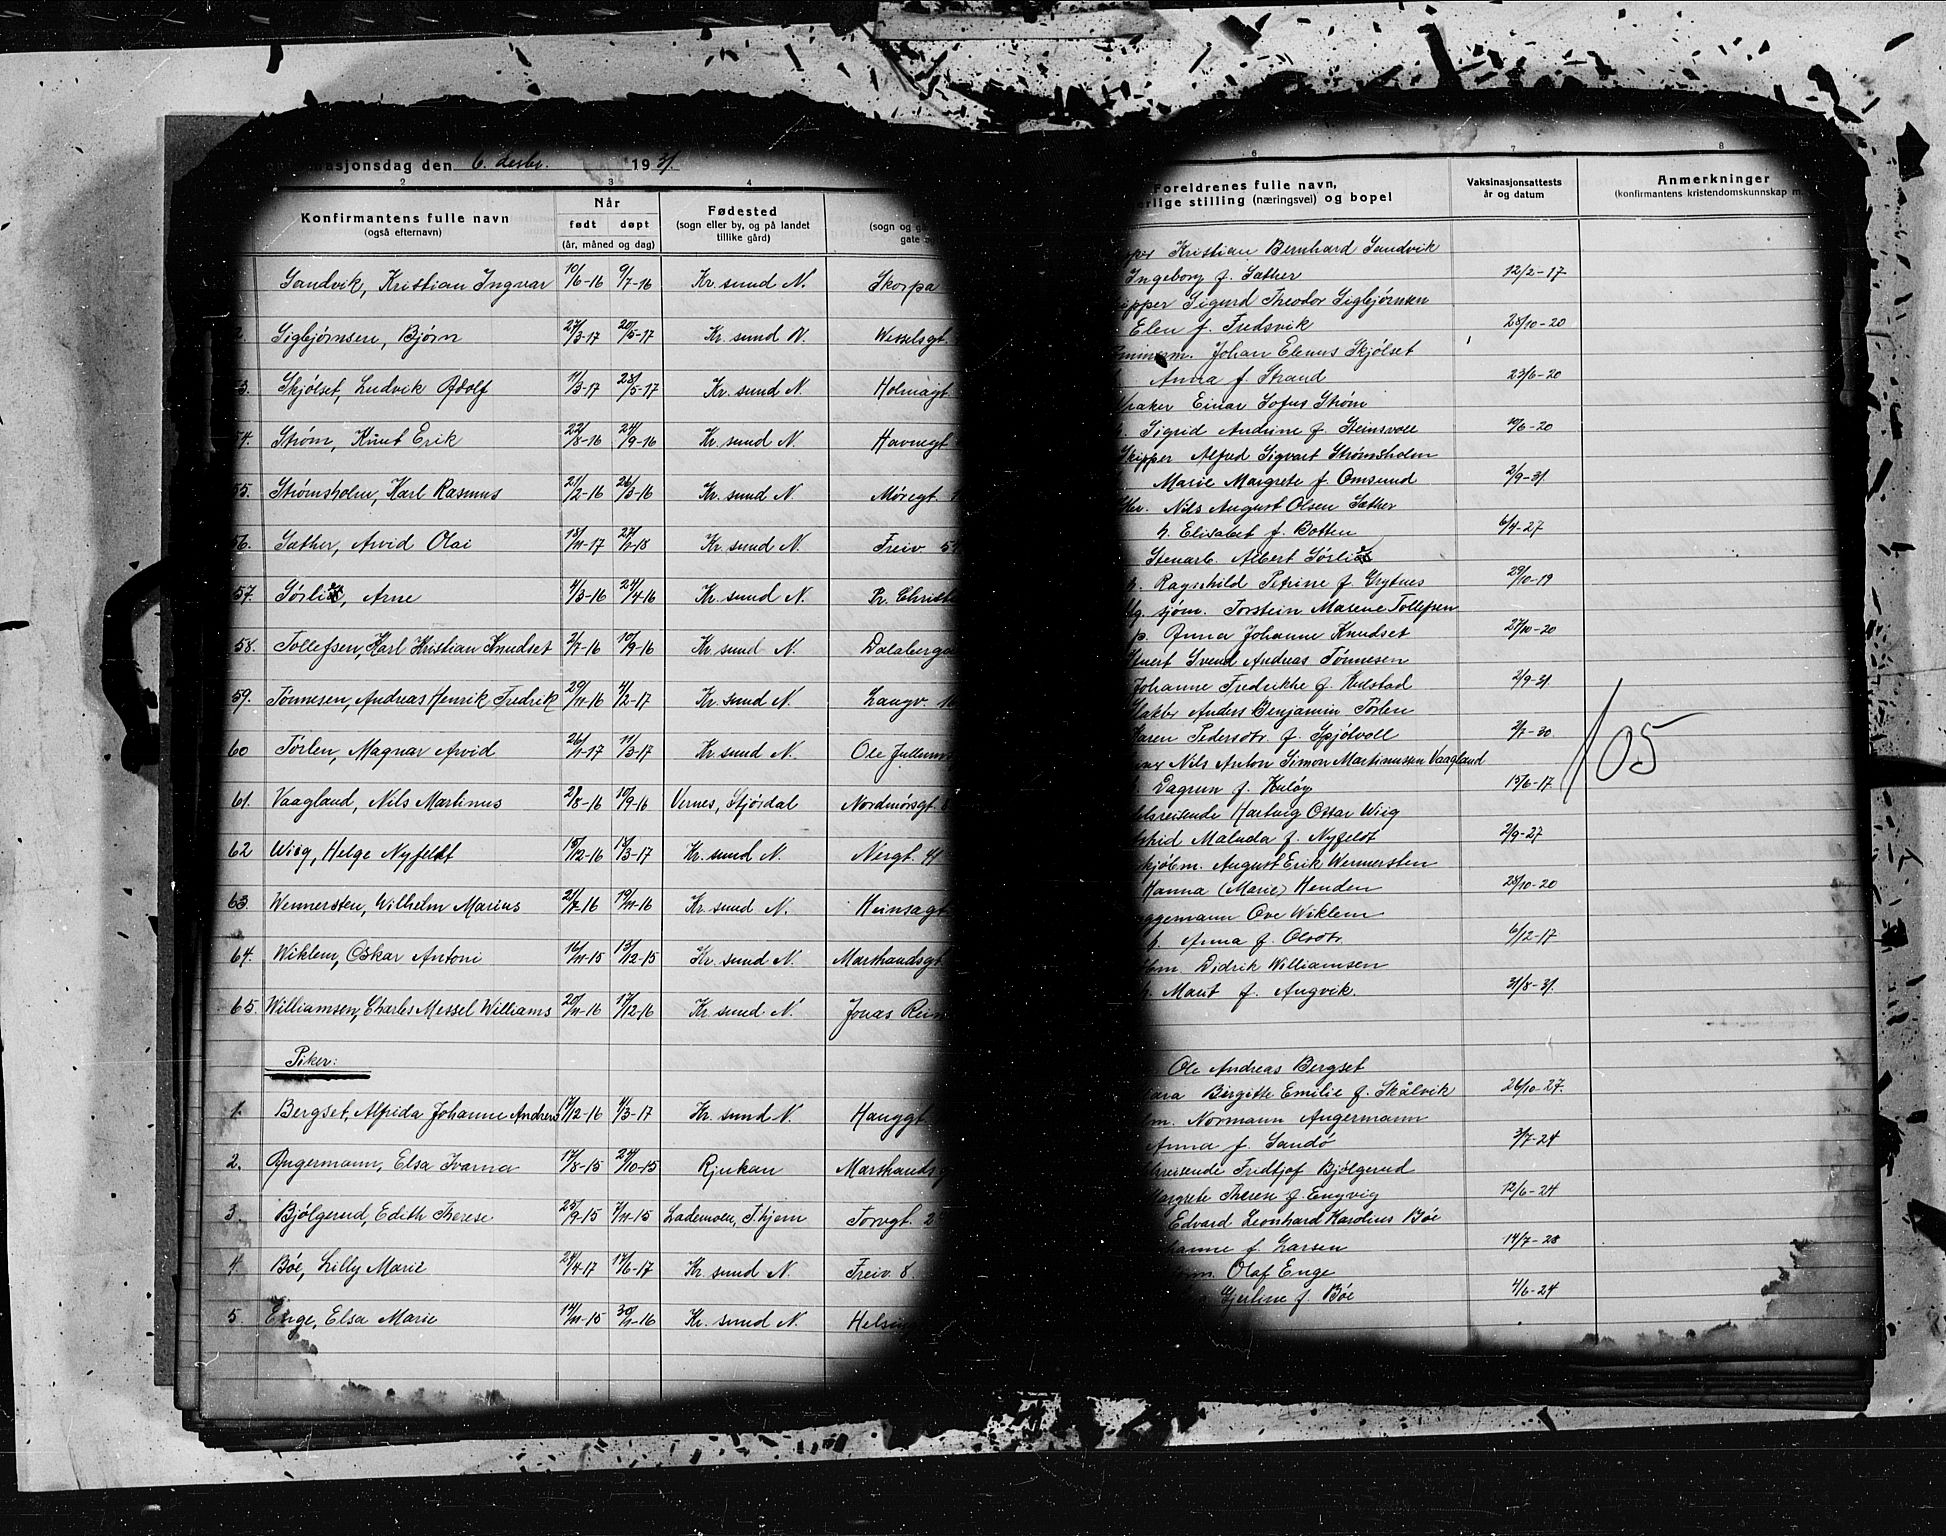 asjonsdag den 6. desbr. 1931.
2 3 4
Konfirmantens fulle navn
(også efternavn)
Når
født døpt
(år, måned og dag)
Fødested
(sogn eller by, og på landet
tillike gård)
(sogn og
gate
Sandvik, Kristian Ingvar 10/6-16 9/7-16 Kr.sund N. Skorpa
2. Sigbjørnsen, Bjørn 27/3-17 20/5-17 Kr.sund N. Wesselsgt.
3. Skjølset, Ludvik Adolf 11/3-17 28/5-17 Kr.sund N. Holmagt.
54. Strøm, Knut Erik 22/8-16 24/9-16 Kr.sund N. Havnegt
55. Strømsholm, Karl Rasmus 21/2-16 26/3-16 Kr.sund N. Møregt.
56. Sæther, Arvid Olai 18/11-17 27/1-18 Kr.sund N. Freiv.
57. Sørli, Arne 4/3-16 24/4-16 Kr.sund N. Pr. Christ
58. Tollefsen, Karl Kristian Knudset 2/7-16 10/9-16 Kr.sund N. Dalaberg
59. Tønnesen, Andreas Henrik Fredrik 29/11-16 4/2-17 Kr.sund N. Langv.
60 Tørlen, Magnar Arvid 26/1-17 11/3-17 Kr.sund N. Ole
61. Vaagland, Nils Martinus 2/8-16 10/9-16 Vernes, Stjørdal Nordmørsgt.
62 Wiig, Helge Nyfeldt 15/12-16 18/3-17 Kr.sund N. Nergt. 41
63. Wennersten, Wilhelm Marius 21/7-16 19/11-16 Kr.sund N. Heinsagt
64. Wiklem, Oskar Antoni 16/11-15 13/12-15 Kr.sund N. Marshandsgt.
65. Williamsen, Charles Messel Williams 20/11-16 17/12-16 Kr.sund N. Jonas Rein
Piker:
1. Bergset, Alfrida Johanne Andrea 17/12-16 4/3-17 Kr.sund N. Hauggt
2. Angermann, Elsa Ivarna 17/8-15 24/10-15 Rjukan Marshandsg
3. Bjølgerud, Edith Therese 25/9-15 7/11-15 Lademoen, T.hjem Torvgt. 2
4. Bøe, Lilly Marie 24/4-17 17/6-17 Kr.sund N. Freiv. 8.
5. Enge, Elsa Marie 14/11-15 30/1-16 Kr.sund N. Helsin
6 7 8
Foreldrenes fulle navn,
erlige stilling (næringsvei) og bopel
Vaksinasjonsattests
år og datum
Anmerkninger
(konfirmantens kristendomskunnskap m.
Kristian Bernhard Sandvik
Ingeborg f. Sæther 12/2-17
ipper Sigurd Theodor Sigbjørnsen
Elen f. Fredsvik 28/10-20
Johan Elenus Skjølset
Anna f. Strand 23/6-20
Einar Sofus Strøm
Sigrid Andrine f. Steinsvoll 10/6-20
Skipper Alfred Sigvart Strømsholm
Marie Margrete f. Omsund 2/9-31
Nils August Olsen Sæther
h. Elisabet f. Botten 6/4-27
Stenarb. Albert Sørli
h. Ragnhild Petrine f. Grytnes 29/10-19
sjøm. Torstein Marene Tollefsen
p. Anna Johanne Knudset 27/10-20
Svend Andreas Tønnesen
Johanne Fredrikke f. Kulstad 2/9-31
Anders Benjamin Tørlen
Karen Pedersdtr. f. Gjølvoll 2/7-30
Nils Anton Simon Martinussen Vaagland
Dagrun f. Kuløy 15/6-17
elsreisende Hartvig Oskar Wiig
Maluda f. Nyfeldt 2/9-27
August Erik Wennersten
Hanna (Marie) Henden 28/10-20
yggemann Ove Wiklem
h. Anna f. Olsdtr. 6/12-17
Didrik Williamsen
h. Marit f. Angvik. 31/8-31
105
Ole Andreas Bergset
ara Birgitte Emilie f. Skålvik 26/10-27.
m. Normann Angermann
Anna f. Sandø 3/7-24
reisende Fridtjof Bjølgerud
Margrete Therese f. Engvig 12/6-24
Edvard Leonhard Karolius Bøe
hanne f. Larsen 14/7-28
Olaf Enge
Gjerline f. Bøe 4/6-24